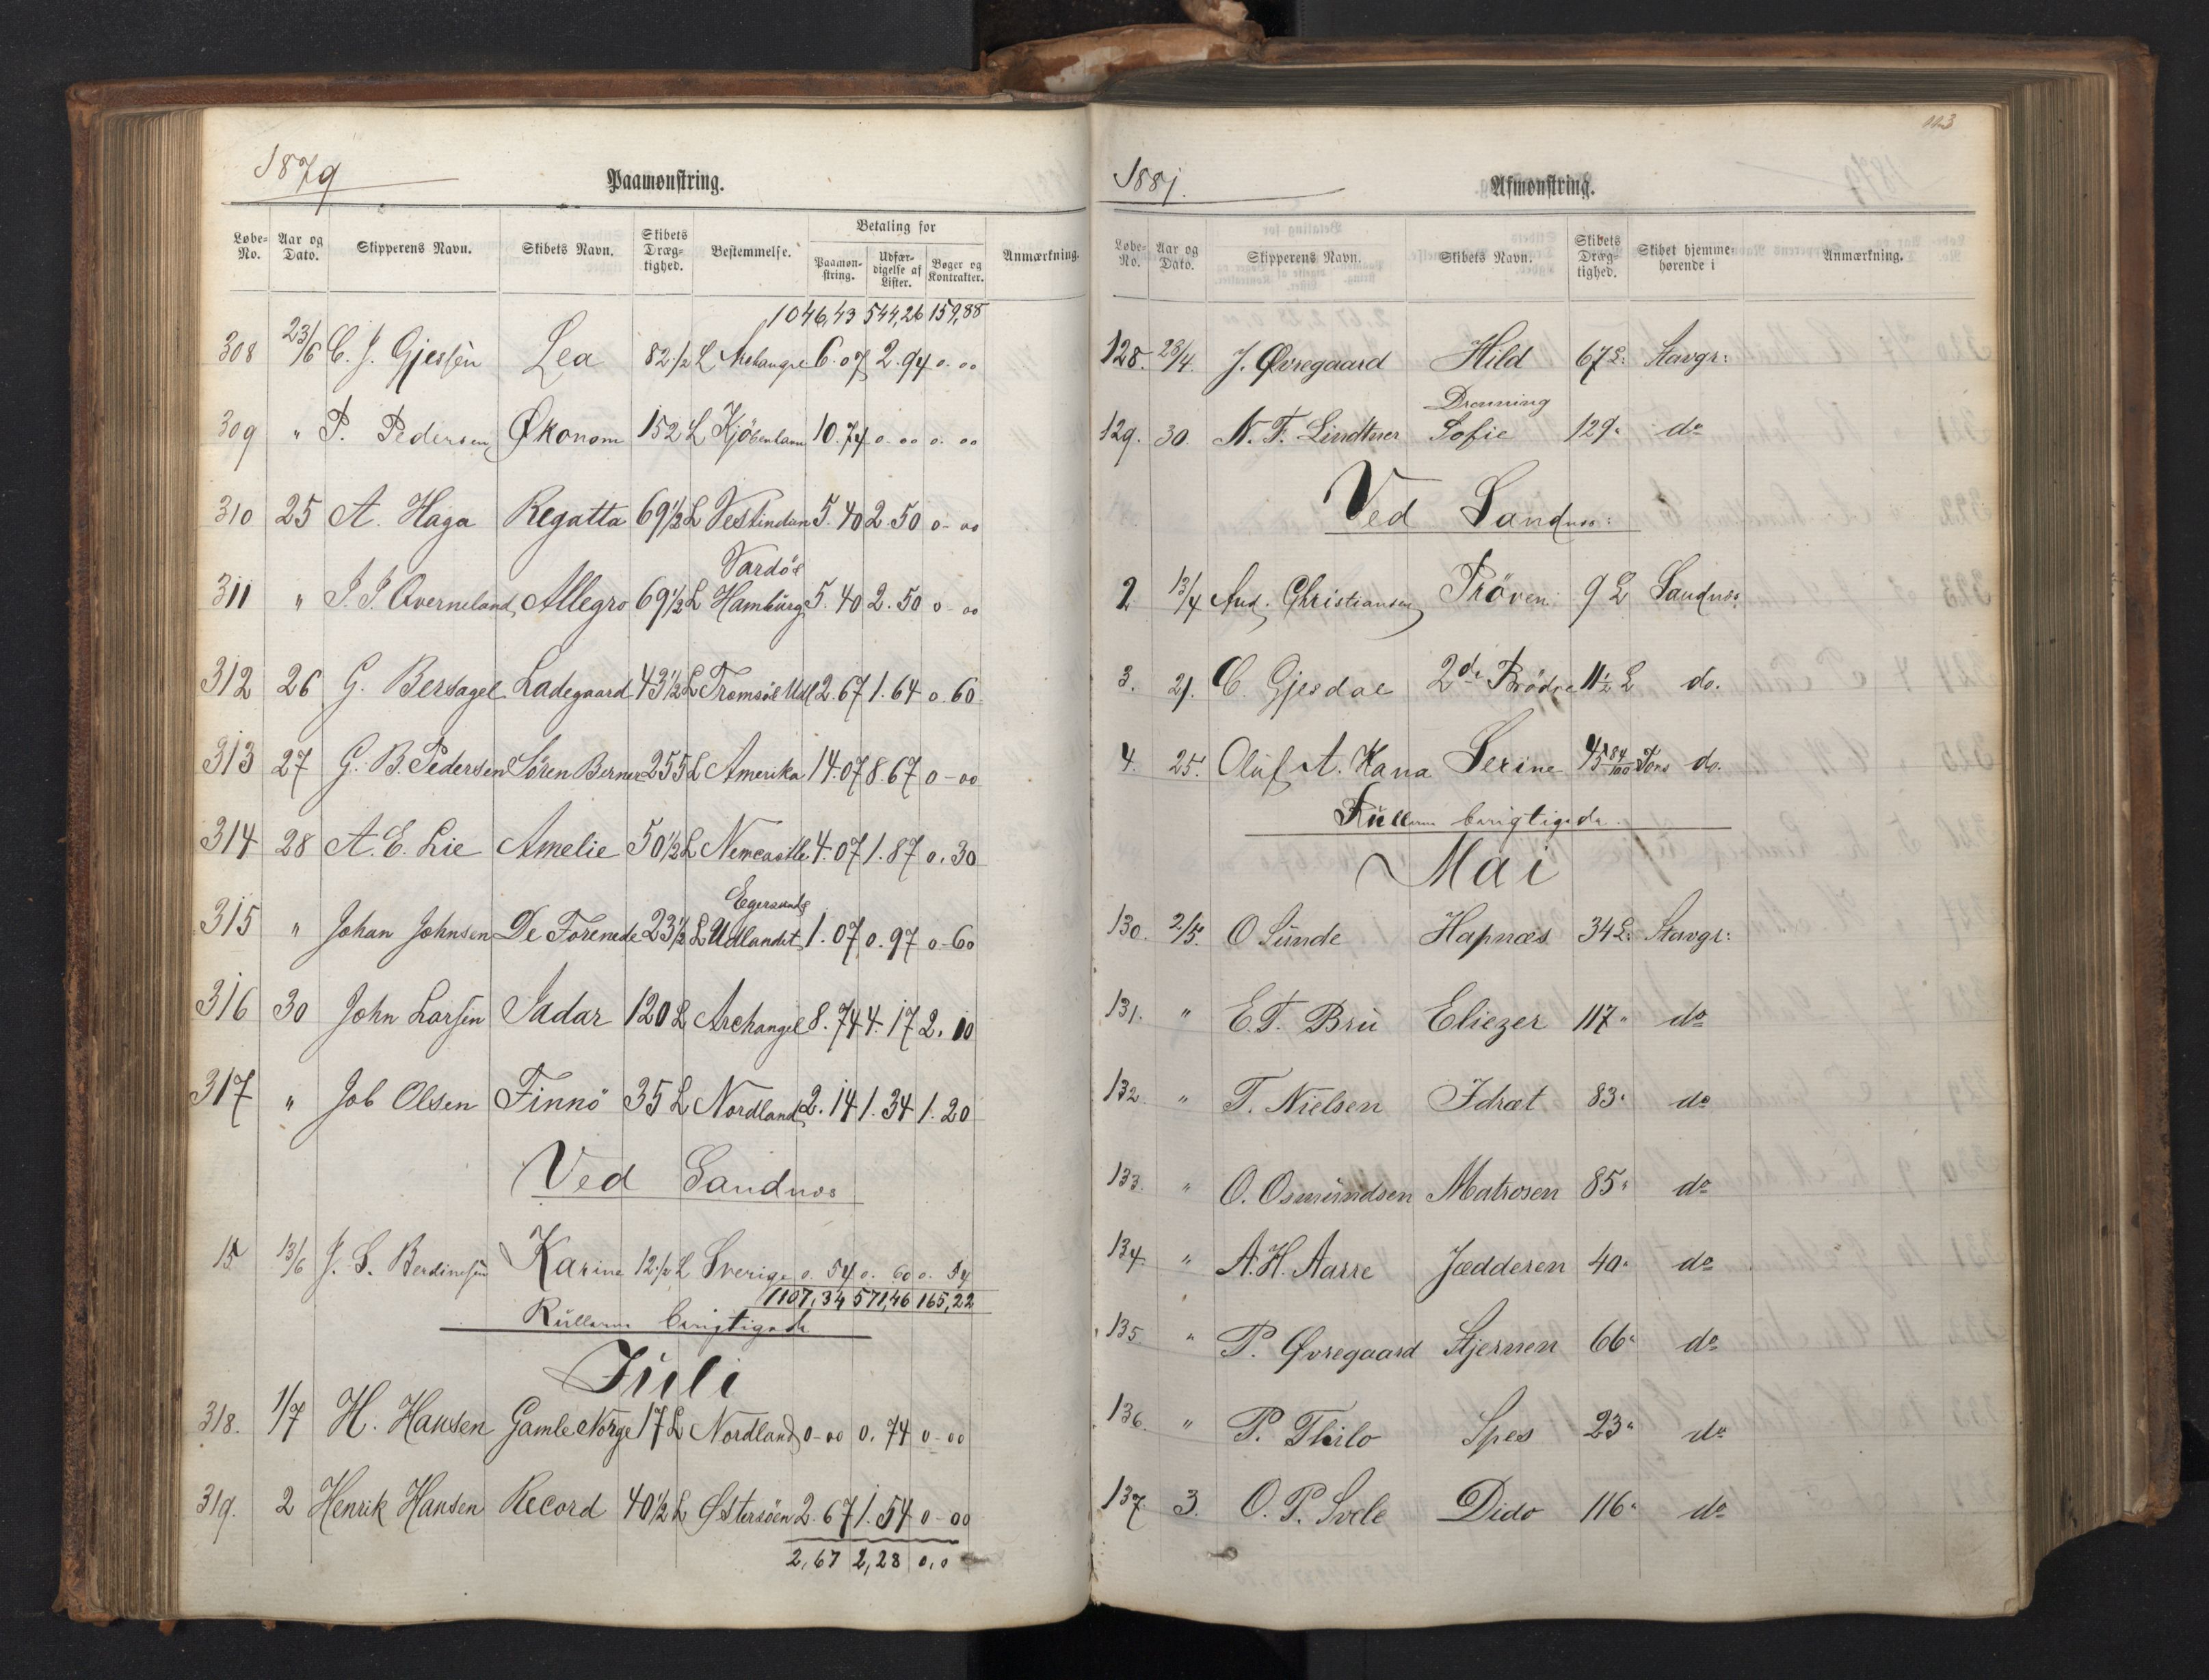 1879
Paamønstring.
Løbe-No. Aar og Dato. Skipperens Navn. Skibets Navn. Skibets Dræg-tighed. Bestemmelse. Betaling for Anmærkning.
Paamøn-string. Udfær-digelse af Lister. Bøger og Kontrakter.
1046,43 544,26 159,88
308 23/6 C. J. Gjessen Lea 82 1/2 L 6.07 2.94 0.00
309 " P. Pedersen Økonom 152 L Kjöbenhavn 10.74 0.00 0.00
310 25 A. Haga Regatta 69 1/2 L Vestindien 5.40 2.50 0-00
Vardöe
311 " J. J. Qverneland Allegro 69 1/2 L Hamburg 5.40 2.50 0-00
312 26 G. Bersagel Ladegaard 43 1/2 L Tromsöe Udl 2.67 1.64 0.60
313 27 G. B. Pedersen Sören Berner 255 L Amerika 14.07 8.67 0-00
314 28 A. E. Lie Amelie 50 1/2 L Newcastle 4.07 1.87 0.30
Egersund
315 " Johan Johnsen De Forenede 23 1/2 L Udlandet 1.07 0.97 0-60
316 30 John Larsen Jadar 120 L Archangel 8.74 4.17 2.10
317 " Job Olsen Finnö 35 L Nordland 2.14 1.34 1.20
Ved Sandnes
15 13/6 J. S. Berdinesen Karine 12 1/2 L Sverige 0.54 0.60 0.54
1107,34 571,46 165,22
Rullerne berigtigede
Juli
318. 1/7 H. Hansen Gamle Norge 17 L Nordland 0-00 0.74 0-00
319. 2 Henrik Hansen Record 40 1/2 L Østersöen 2.67 1.54 0-00
2,67 2,28 0,0
113
1881.
Afmønstring.
Løbe-No. Aar og Dato. Skipperens Navn. Skibets Navn. Skibets Dræg-tighed. Skibet hjemme-hørende i Anmærkning.
128. 28/4. J. Øvregaard Hild 67 L. Stavgr:
Dronning
129. 30. N. F. Lindtner Sofie 129 " do
Ved Sandnes:
2 13/4 And. Christiansen Pröven 9 L Sandnes
3. 21. C Gjesdal 2de Brödre 11 1/2 L do.
4. 25. Oluf A. Hana Serine 45 84/100 Tons do.
Rullerne berigtigede.
Mai
130. 2/5. O Sunde Hapnæs 34 L. Stavgr:
131. " E. T. Bru Eliezer 117 " do
132. " T. Nielsen Idræt 83 " do
133. " O. Osmundsen Matrosen 85 " do
134. " A. H. Aarre Jædderen 40 " do
135. " P. Øvregaard Stjernen 66 " do
136. " P. Thilo Spes 23 " do
137. 3. O. P. Svele Dido 116 " do